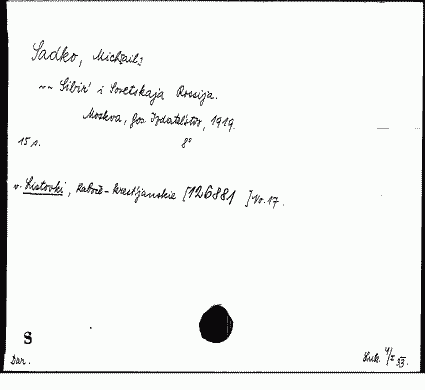 Sadko, Michail:
~~ Sibir' i Sovetskaja Rossija.
Moskva, Gos. Izdatelstvo, 1919.
15 s. 8°
v. Listovki, Raboče-krestjanskie [126881] No. 17.
S
Dar. 53.